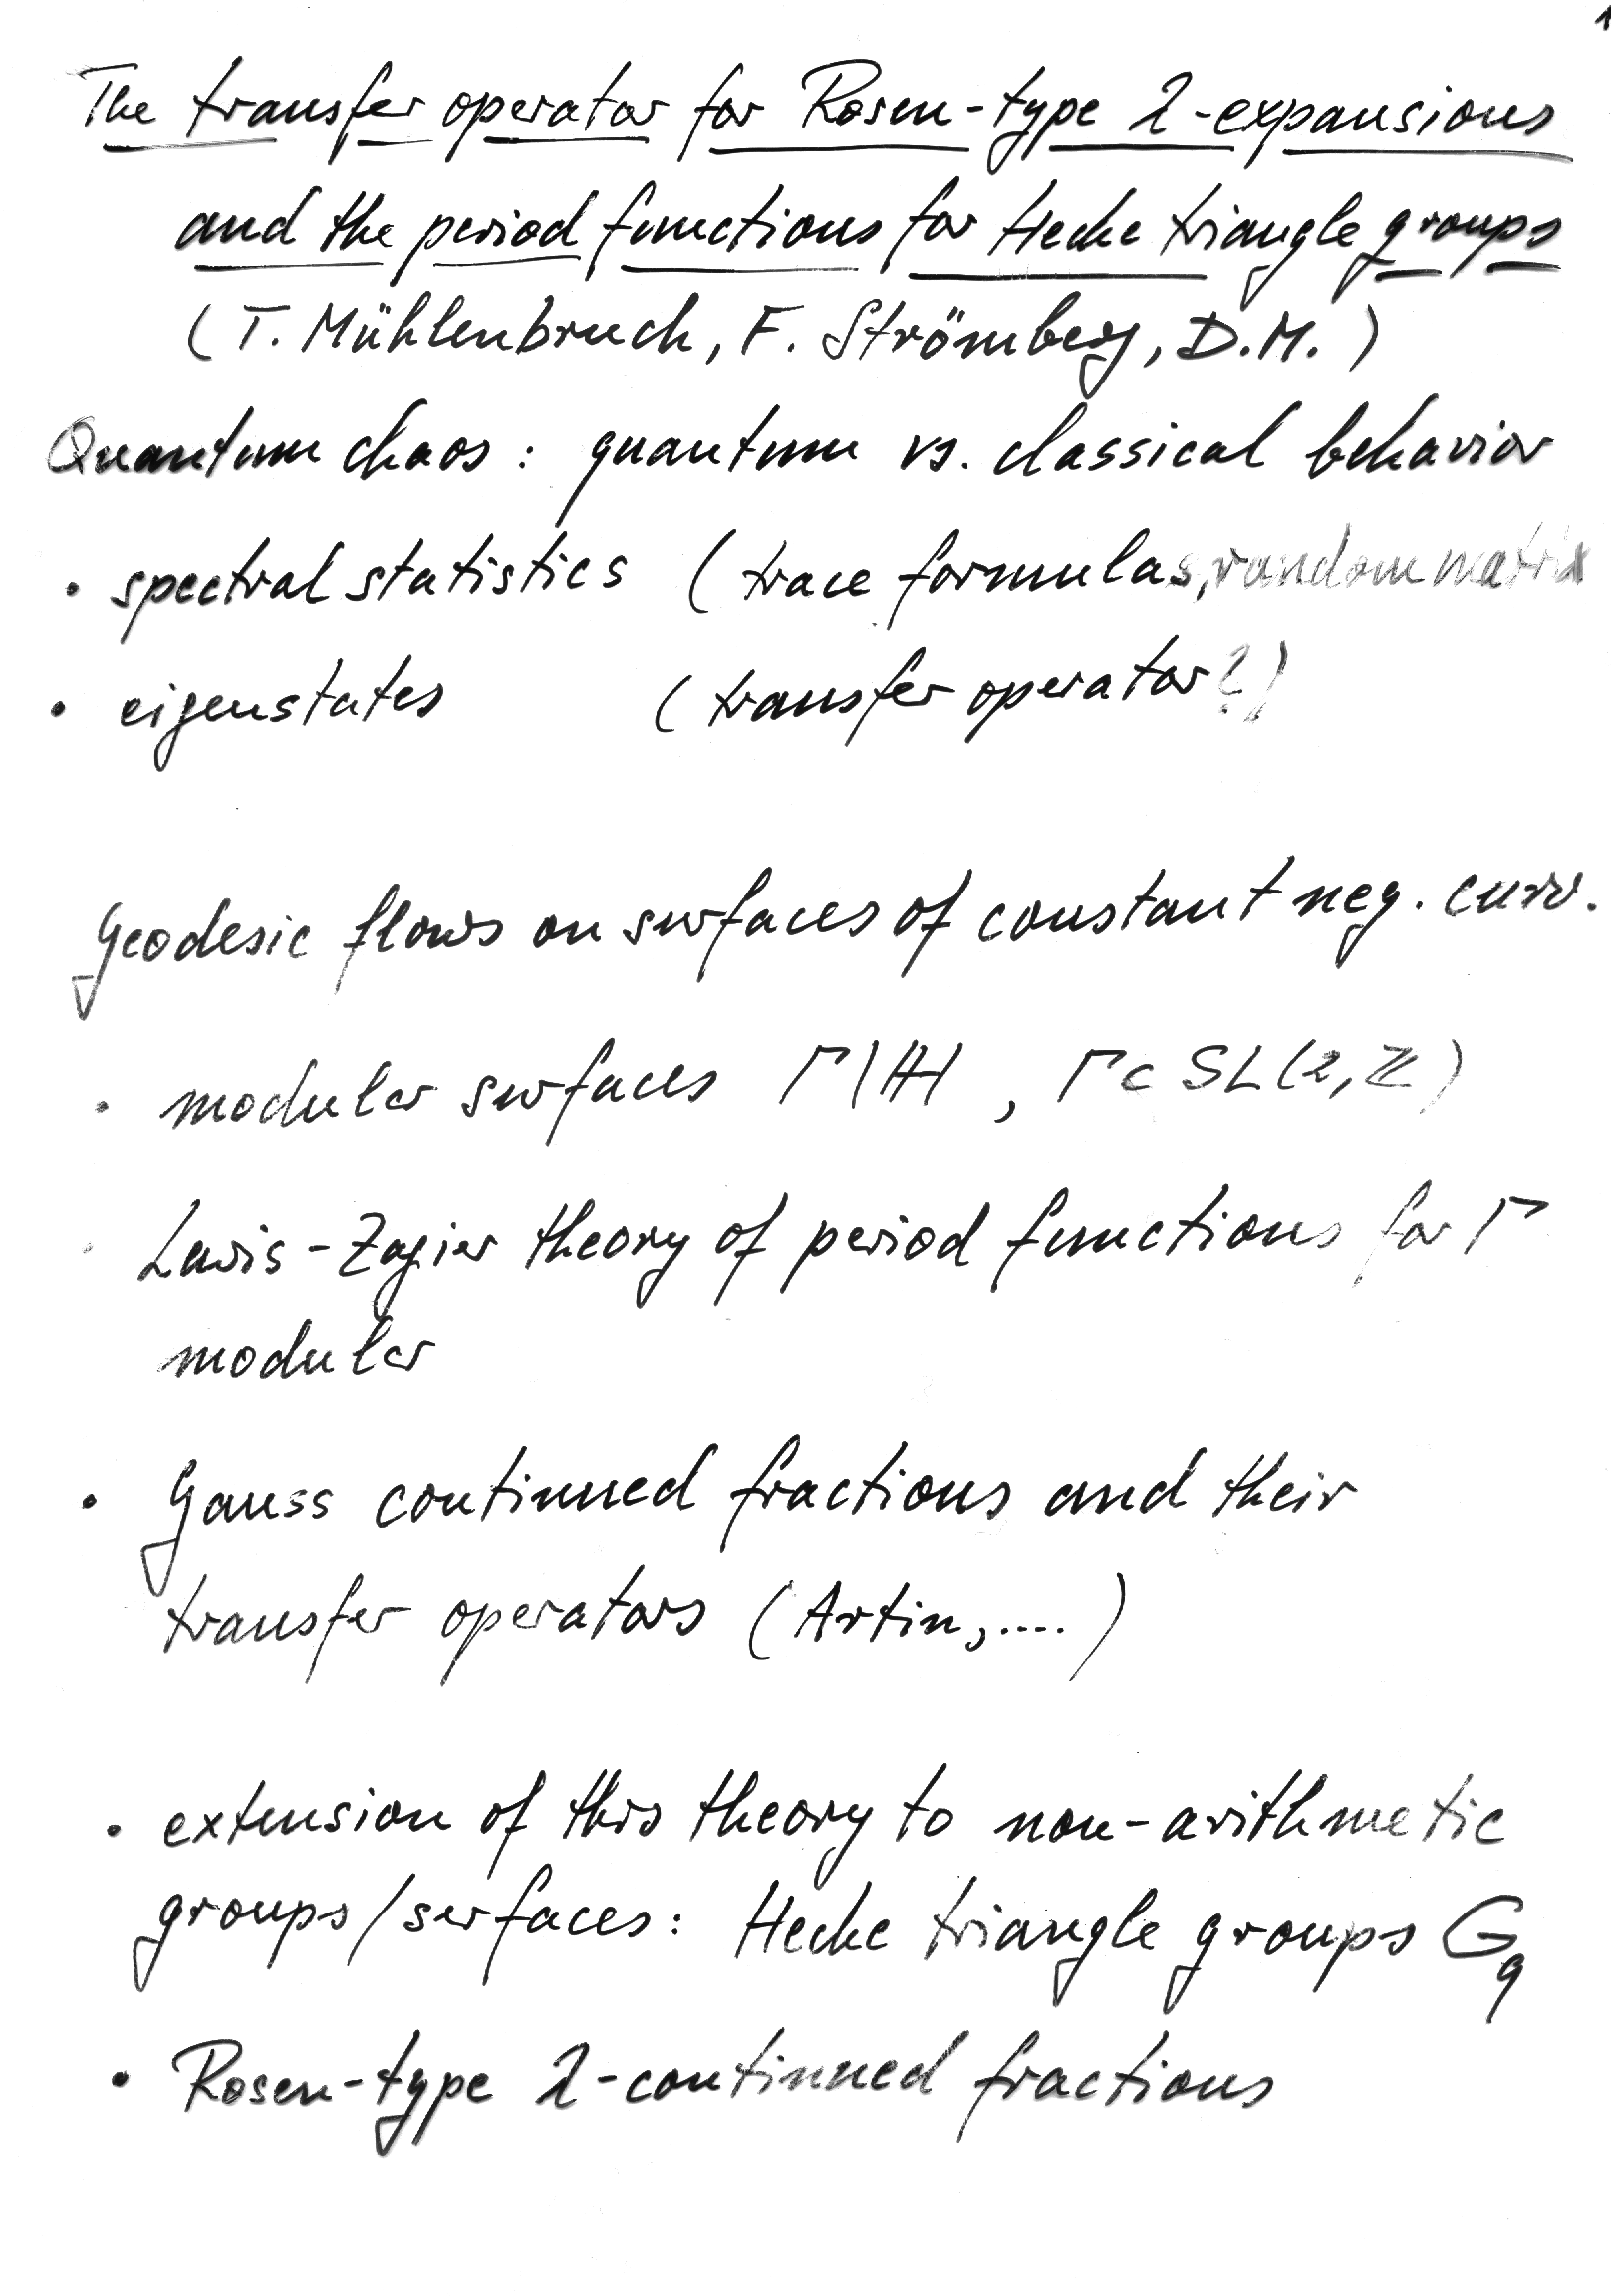 1
The transfer operator for Rosen-type λ-expansions
and the period functions for Hecke triangle groups
(T. Mühlenbruch, F. Strömberg, D.M.)
Quantum chaos: quantum vs. classical behavior
• spectral statistics (trace formulas, random matrix
• eigenstates (transfer operator?)
Geodesic flows on surfaces of constant neg. curv.
• modular surfaces Γ\ℍ, Γ⊂SL(2,ℤ)
• Lewis-Zagier theory of period functions for Γ
modular
• Gauss continued fractions and their
transfer operators (Artin,....)
• extension of this theory to non-arithmetic
groups/surfaces: Hecke triangle groups G_q
• Rosen-type λ-continued fractions